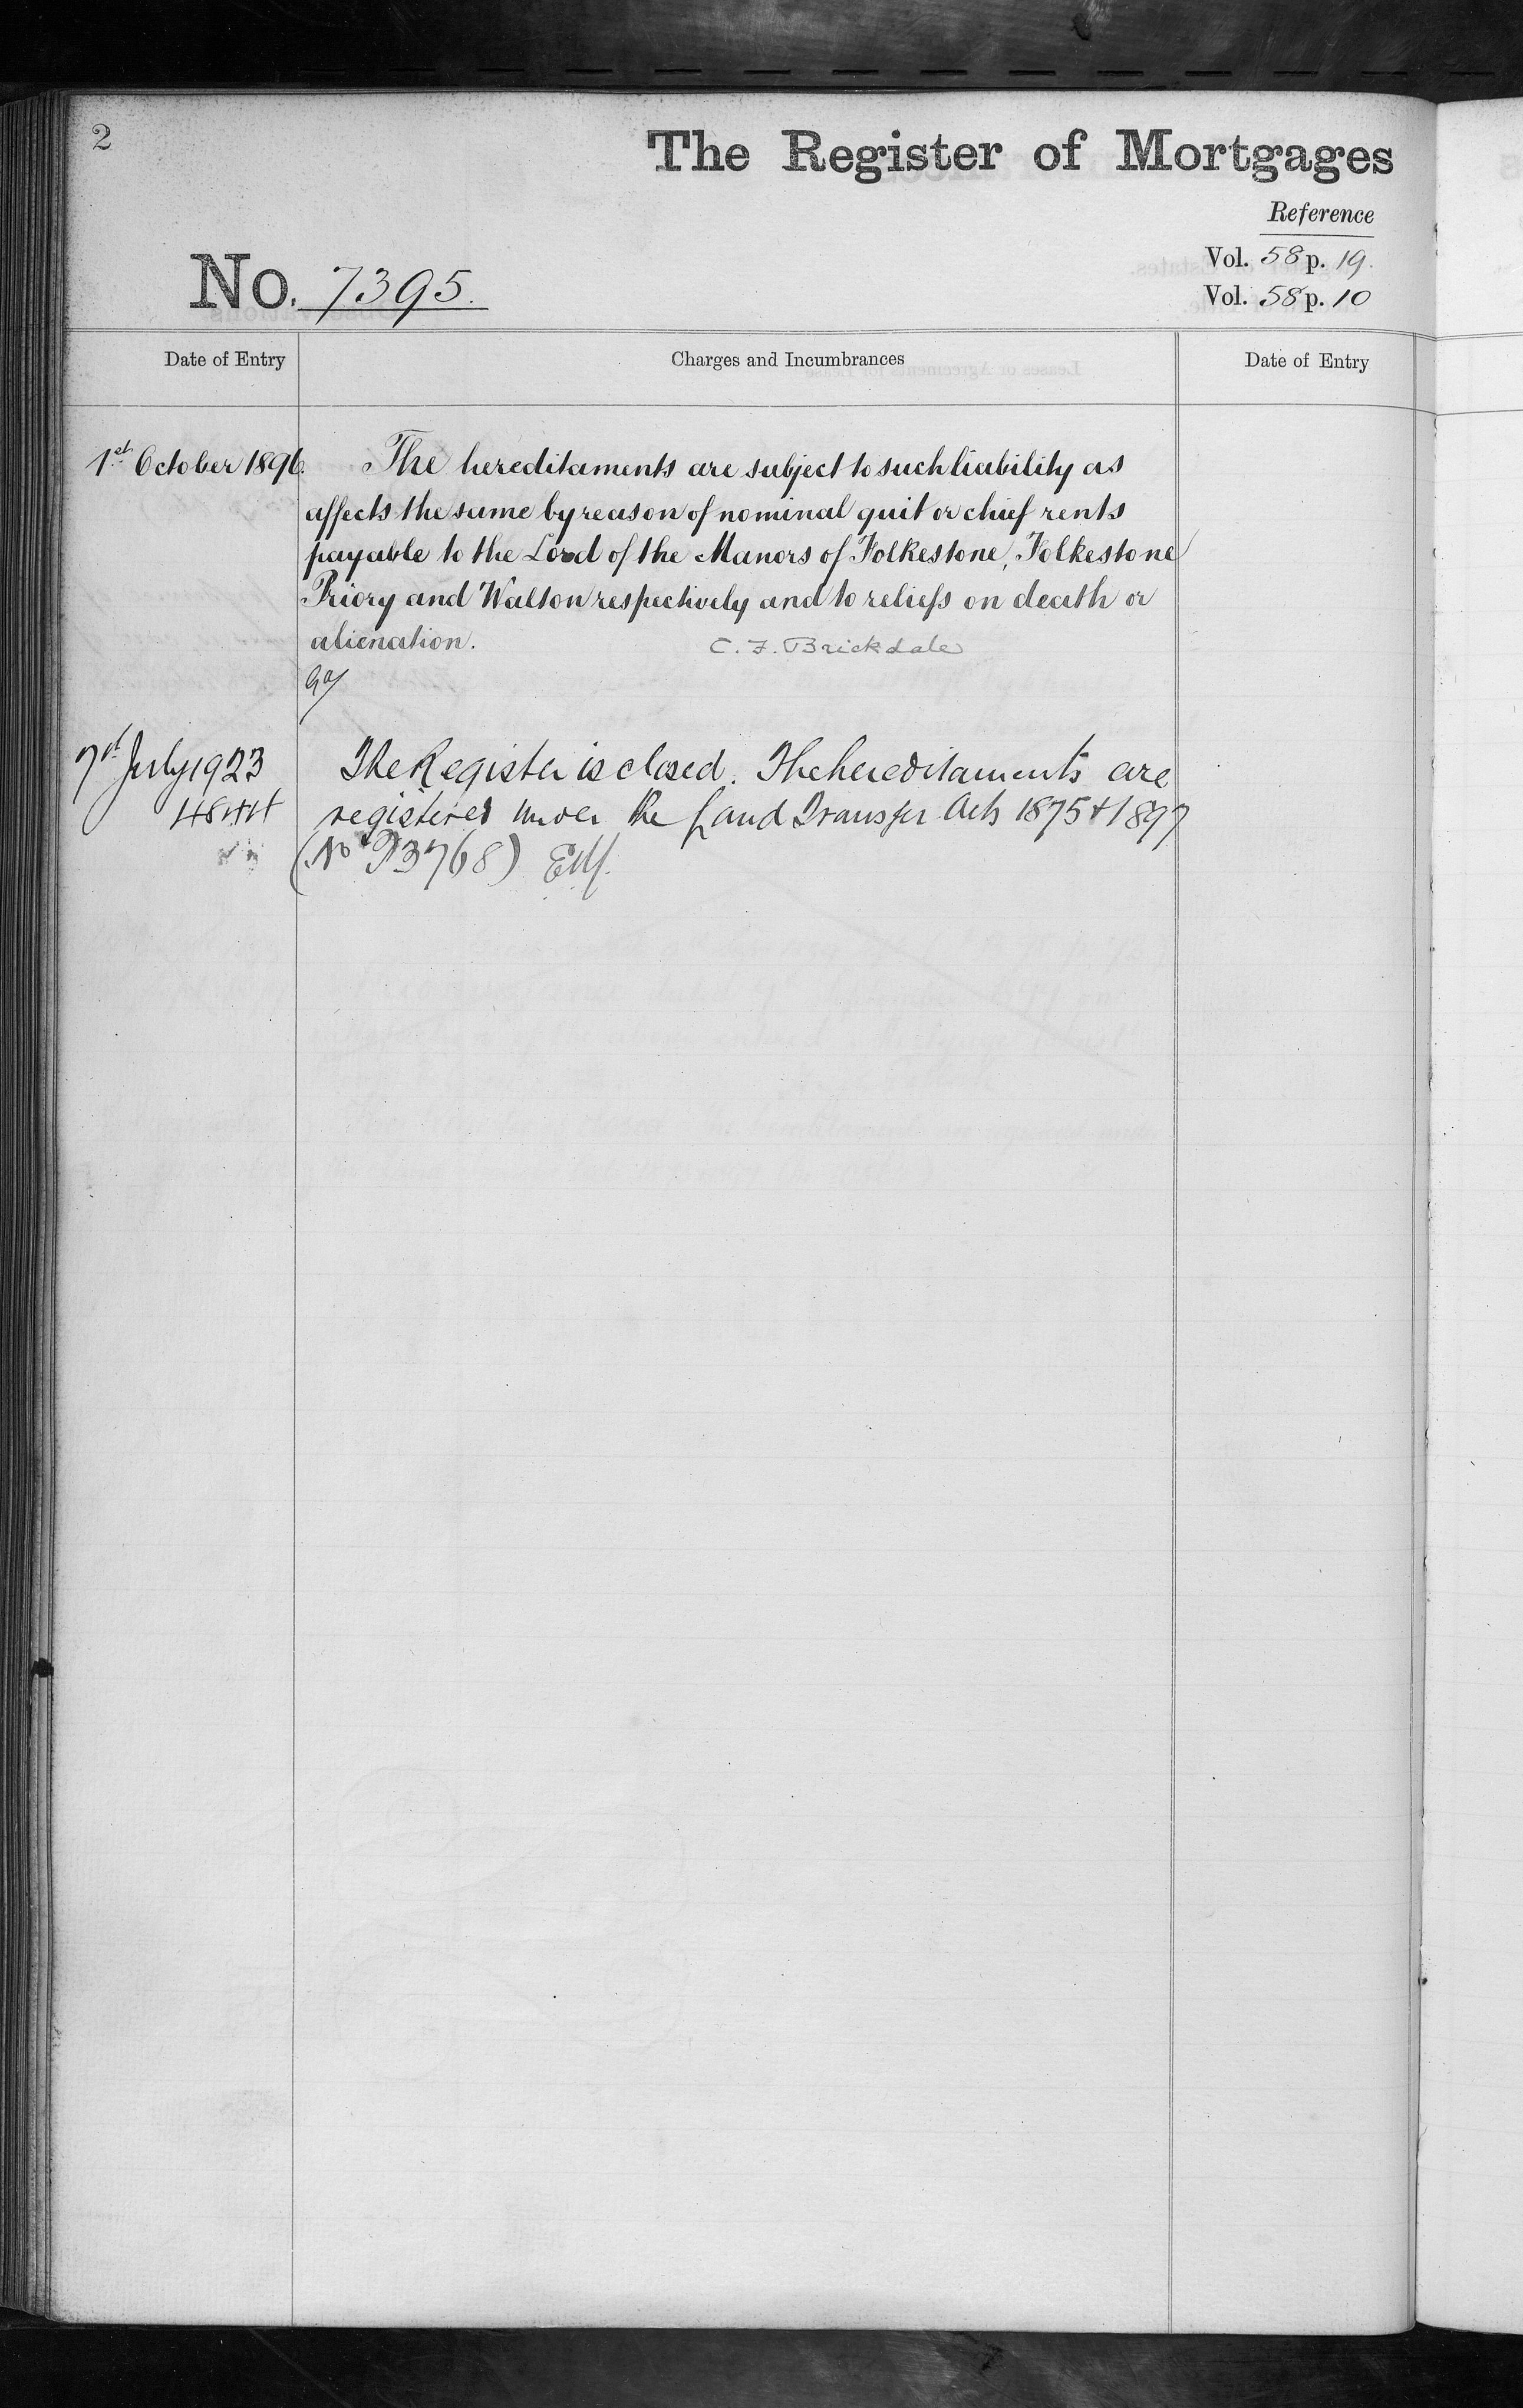 2
The Register of Mortgages
Reference
Vol. 58 p. 19.
Vol. 58 p. 10
No. 7395.
Date of Entry
Charges and Incumbrances
Date of Entry
1st October 1896.
The hereditaments are subject to such liability as
affects the same by reason of nominal quit or chief rents
payable to the Lord of the Manors of Folkestone, Folkestone
Priory and Walton respectively and to reliefs on death or
alienation.
C. F. Brickdale
7th July 1923
The Register is closed. The hereditaments are
registered under the Land Transfer Acts 1875 & 1897
(No P3768)